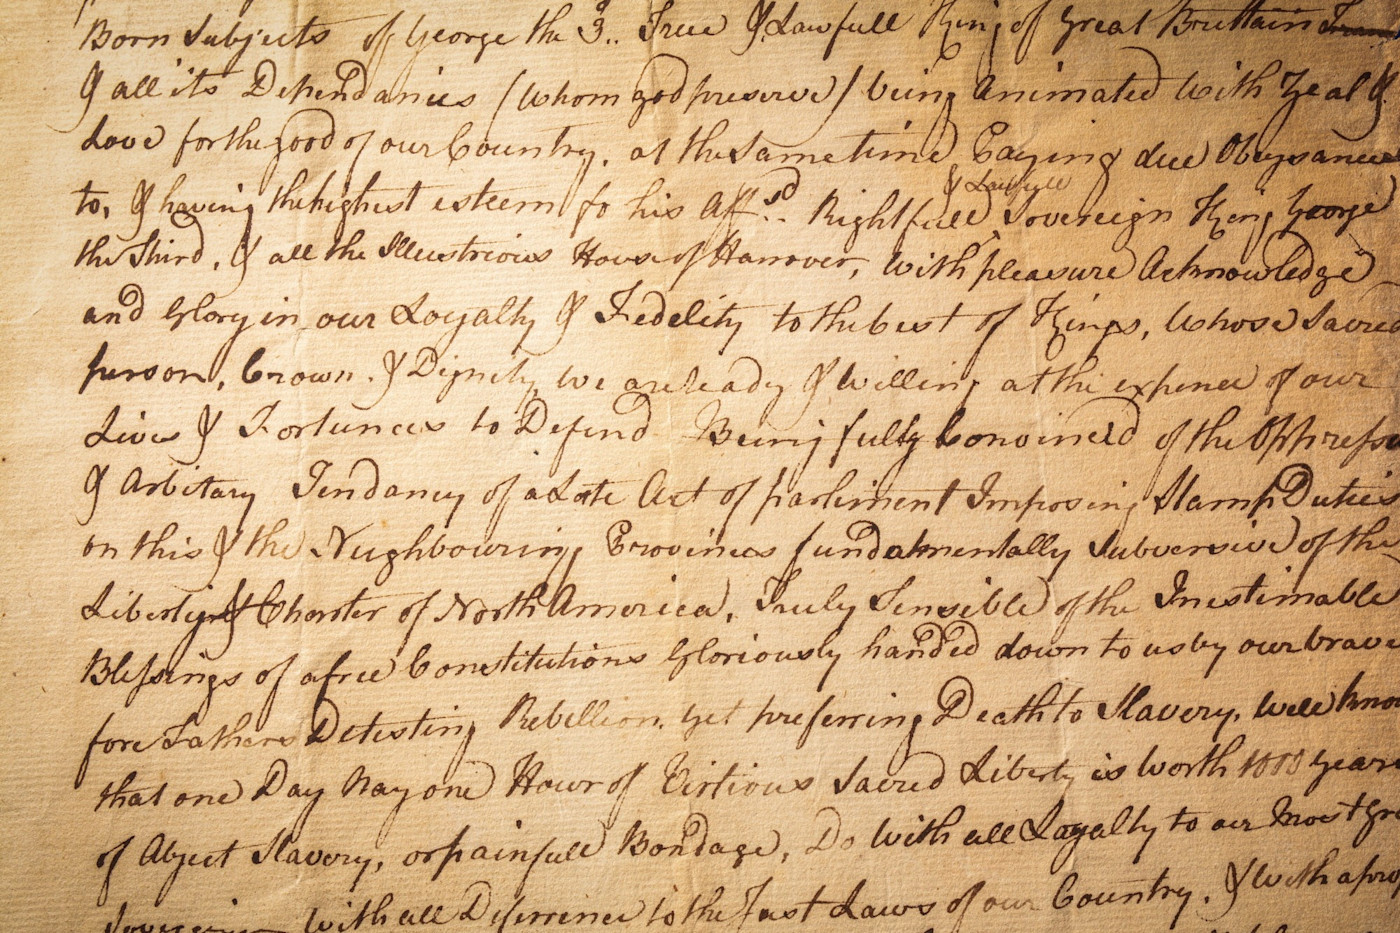 Born Subjects of George the 3.. True & Lawfull King of Great Bruttain
& all its Dependancies (whom god preserve) being Animated with Zeal &
Love for the good of our Country, at the same time Paying due Obeysance
to, & having the highest esteem fo his Aff.sd Rightfull & Lawfull Sovereign King George
the Third, & all the Illustrious House of Hanover, with pleasure Acknowledge
and Glory in our Loyalty & Fidelity to the best of Kings, whose Sacred
person, Crown, & Dignity we are ready & willing at the expence of our
Lives & Fortunes to Defend Being fully Convinced of the Oppress
& Arbitary Tendancy of a Late Act of parliment Imposing Stamp Duties
on this & the Neighbouring Provinces fundatmentally Subversive of the
Liberty & Charter of North America, Truly Sensible of the Inestimable
Blessings of a free Constitutions Gloriously handed down to us by our brave
fore Fathers Detesting Rebellion, yet preferring Death to Slavery, well know
that one Day Nay one Hour of Virtious Sacred Liberty is worth 1000 years
of Abject Slavery, or painfull Bondage, Do with all Loyalty to our Most Gra
with all Deference to the Just Laws of our Country, & with a pro